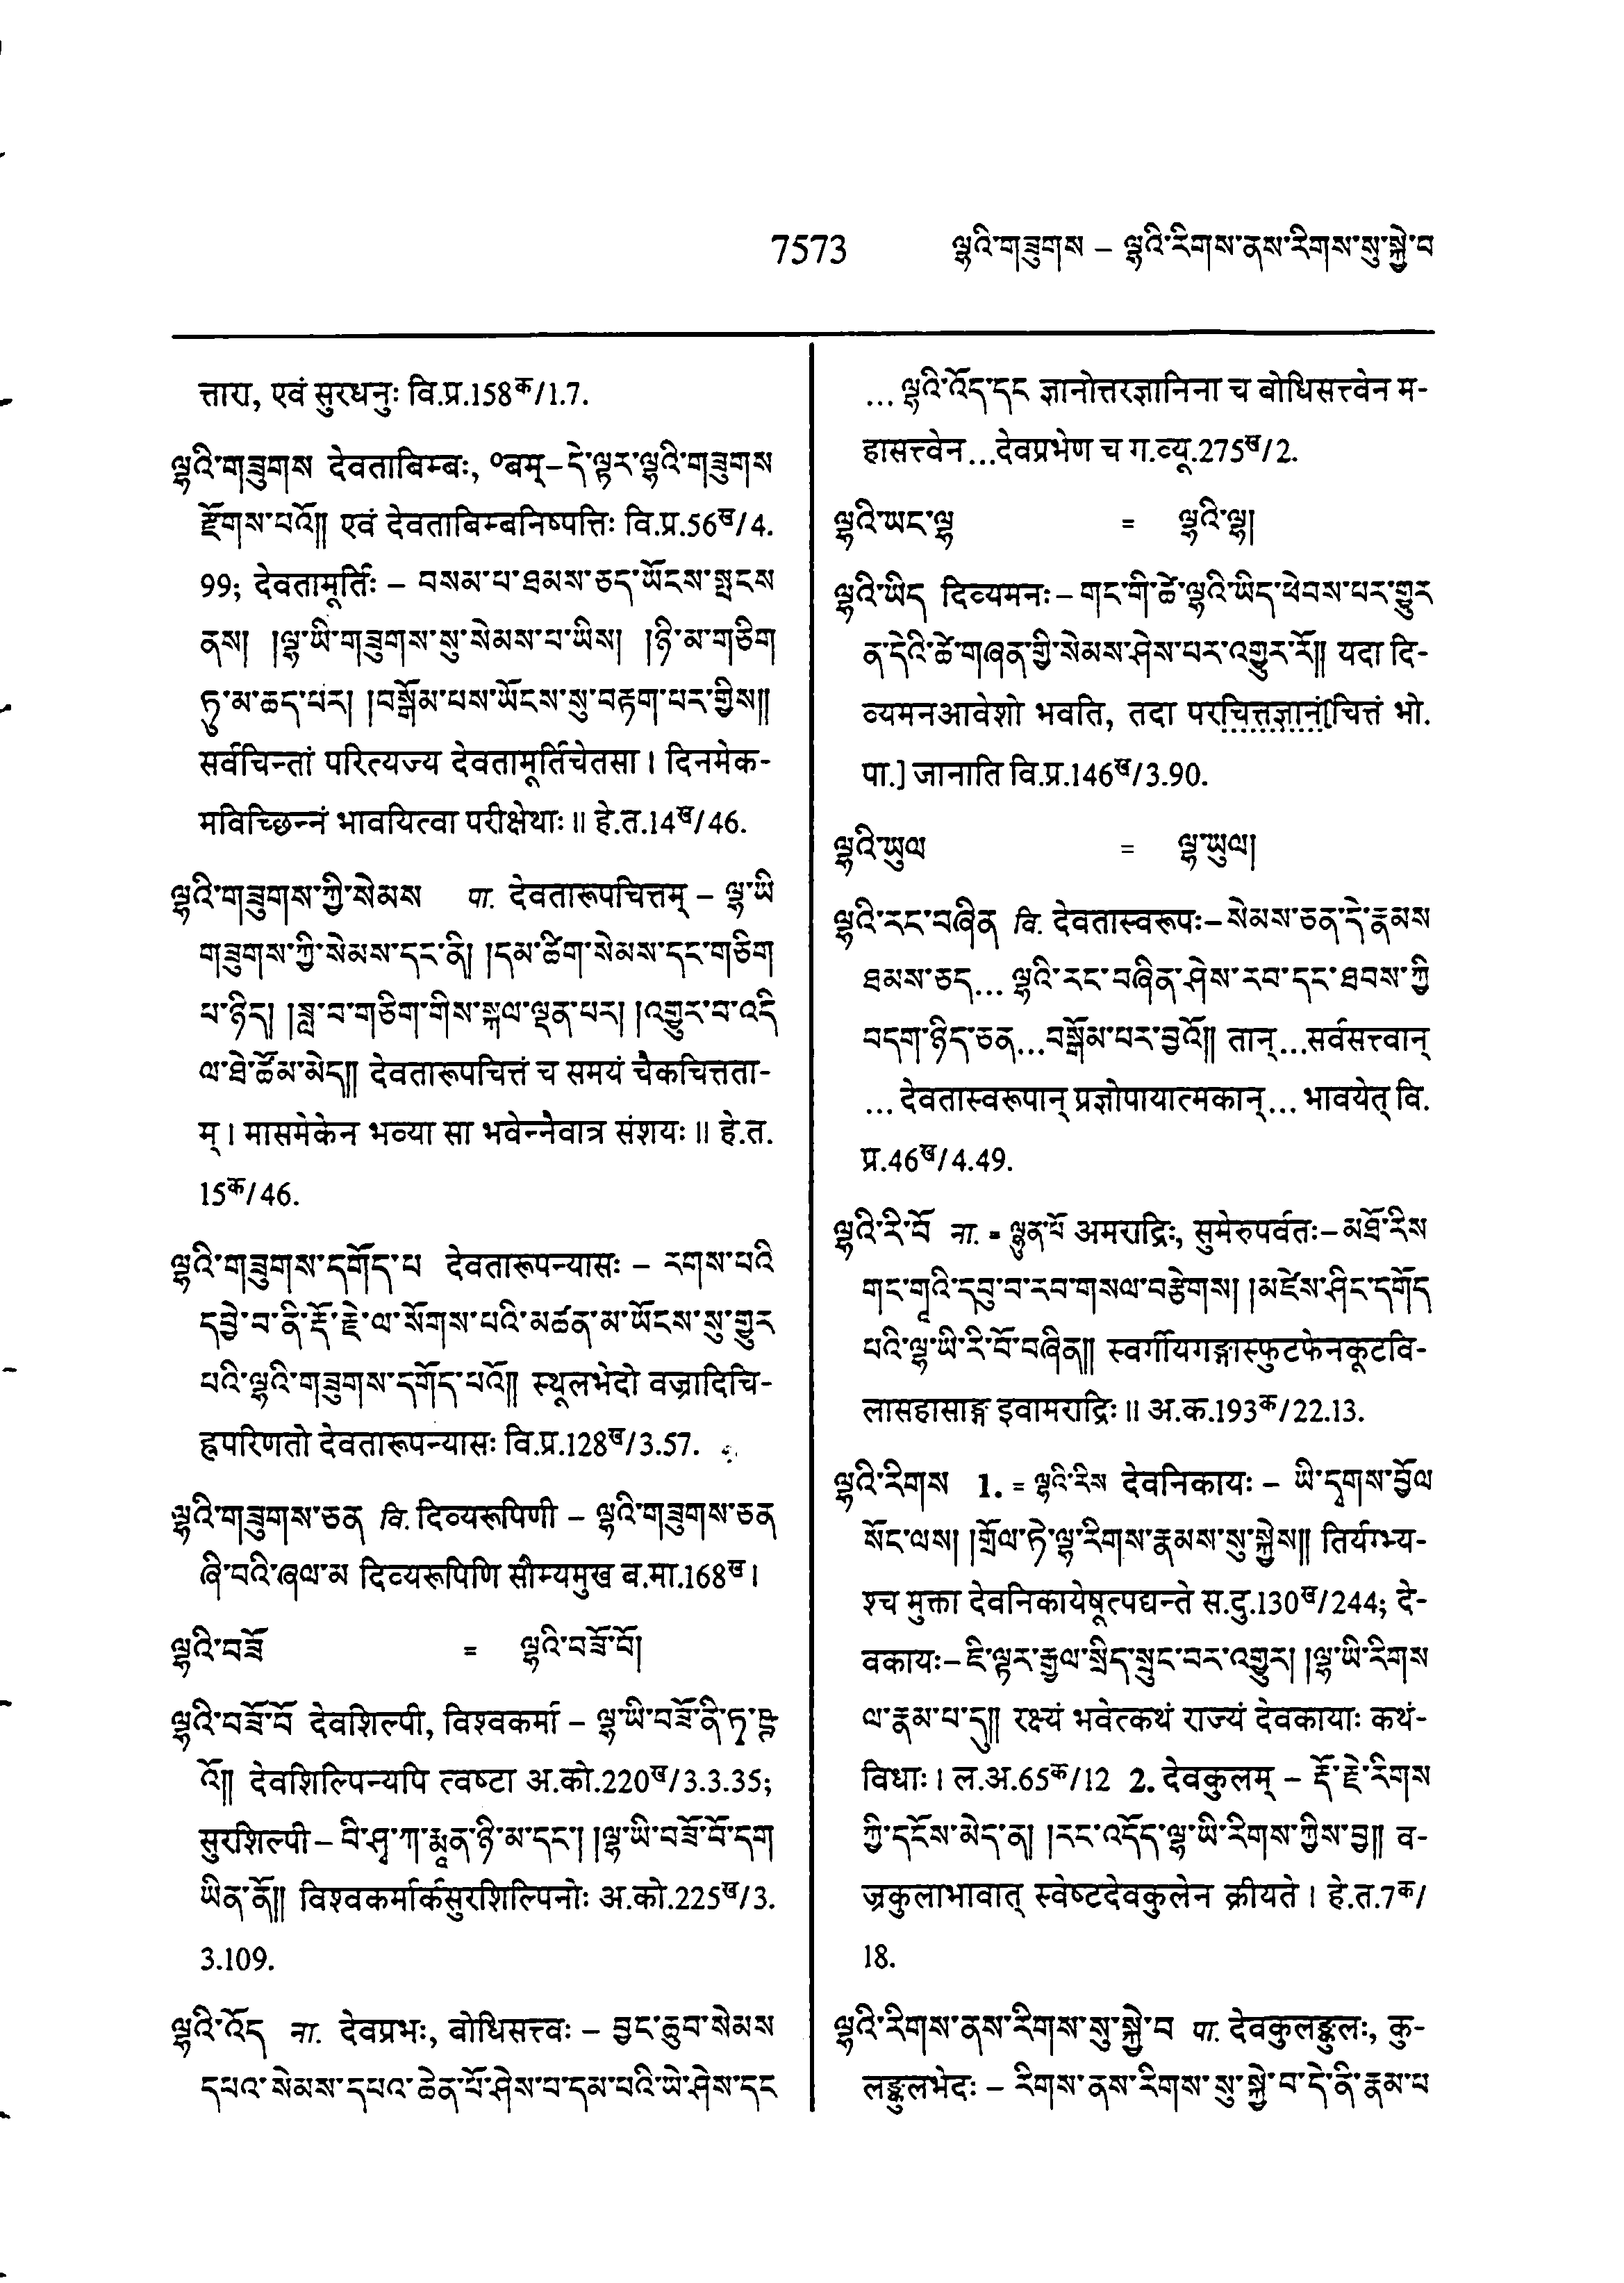 7573 ལྷའི་གཟུགས – ལྷའི་རིགས་ནས་རིགས་སུ་སྐྱེ་བ
त्तारा, एवं सुरधनुः वि.प्र.158क/1.7.
ལྷའི་གཟུགས देवताबिम्बः, ०बम् – དེ་ལྟར་ལྷའི་གཟུགས
རྫོགས་པའོ།། एवं देवताबिम्बनिष्पत्तिः वि.प्र.56ख/4.
99; देवतामूर्तिः – བསམ་པ་ཐམས་ཅད་ཡོངས་སྤངས
ནས། །ལྷ་ཡི་གཟུགས་སུ་སེམས་པ་ཡིས། །ཉི་མ་གཅིག
ཏུ་མ་ཆད་པར། །བསྒོམ་པས་ཡོངས་སུ་བརྟག་པར་གྱིས།།
सर्वचिन्तां परित्यज्य देवतामूर्तिचेतसा । दिनमेक-
मविच्छिन्नं भावयित्वा परीक्षेथाः ॥ हे.त.14ख/46.
ལྷའི་གཟུགས་ཀྱི་སེམས पा. देवतारूपचित्तम् – ལྷ་ཡི
གཟུགས་ཀྱི་སེམས་དང་ནི། །དམ་ཚིག་སེམས་དང་གཅིག
པ་ཉིད། །ཟླ་བ་གཅིག་གིས་སྐལ་ལྡན་པར། །འགྱུར་བ་འདི
ལ་ཐེ་ཚོམ་མེད།། देवतारूपचित्तं च समयं चैकचित्तता-
म् । मासमेकेन भव्या सा भवेन्नैवात्र संशयः ॥ हे.त.
15क/46.
ལྷའི་གཟུགས་དགོད་པ देवतारूपन्यासः – རགས་པའི
དབྱེ་བ་ནི་རྡོ་རྗེ་ལ་སོགས་པའི་མཚན་མ་ཡོངས་སུ་གྱུར
པའི་ལྷའི་གཟུགས་དགོད་པའོ།། स्थूलभेदो वज्रादिचि-
ह्नपरिणतो देवतारूपन्यासः वि.प्र.128ख/3.57.
ལྷའི་གཟུགས་ཅན वि. दिव्यरूपिणी – ལྷའི་གཟུགས་ཅན
ཞི་བའི་ཞལ་མ दिव्यरूपिणि सौम्यमुख ब.मा.168ख ।
ལྷའི་བཟོ = ལྷའི་བཟོ་བོ།
ལྷའི་བཟོ་བོ देवशिल्पी, विश्वकर्मा – ལྷ་ཡི་བཟོ་ནི་ཏྭ་ཥྚ
འོ།། देवशिल्पिन्यपि त्वष्टा अ.को.220ख/3.3.35;
सुरशिल्पी – བི་ཤྭ་ཀ་རྨན་ཉི་མ་དང་། །ལྷ་ཡི་བཟོ་བོ་དག
ཡིན་ནོ།། विश्वकर्मार्कसुरशिल्पिनोः अ.को.225ख/3.
3.109.
ལྷའི་འོད ना. देवप्रभः, बोधिसत्त्वः – བྱང་ཆུབ་སེམས
དཔའ་སེམས་དཔའ་ཆེན་པོ་ཤེས་བ་དམ་པའི་ཡེ་ཤེས་དང
... ལྷའི་འོད་དང ज्ञानोत्तरज्ञानिना च बोधिसत्त्वेन म-
हासत्त्वेन...देवप्रभेण च ग.व्यू.275ख/2.
ལྷའི་ཡང་ལྷ = ལྷའི་ལྷ།
ལྷའི་ཡིད दिव्यमनः – གང་གི་ཚེ་ལྷའི་ཡིད་ཕེབས་པར་གྱུར
ན་དེའི་ཚེ་གཞན་གྱི་སེམས་ཤེས་པར་འགྱུར་རོ།། यदा दि-
व्यमनआवेशो भवति, तदा परचित्तज्ञानं[चित्तं भो.
पा.] जानाति वि.प्र.146ख/3.90.
ལྷའི་ཡུལ = ལྷ་ཡུལ།
ལྷའི་རང་བཞིན वि. देवतास्वरूपः – སེམས་ཅན་དེ་རྣམས
ཐམས་ཅད... ལྷའི་རང་བཞིན་ཤེས་རབ་དང་ཐབས་ཀྱི
བདག་ཉིད་ཅན...བསྒོམ་པར་བྱའོ།། तान्...सर्वसत्त्वान्
... देवतास्वरूपान् प्रज्ञोपायात्मकान्... भावयेत् वि.
प्र.46ख/4.49.
ལྷའི་རི་བོ ना. = ལྷུན་པོ अमराद्रिः, सुमेरुपर्वतः – མཐོ་རིས
གང་གཱའི་དབུ་བ་རབ་གསལ་བརྩེགས། །མཛེས་ཤིང་དགོད
པའི་ལྷ་ཡི་རི་བོ་བཞིན།། स्वर्गीयगङ्गास्फुटफेनकूटवि-
लासहासाङ्ग इवामराद्रिः ॥ अ.क.193क/22.13.
ལྷའི་རིགས 1. = ལྷའི་རིས देवनिकायः – ཡི་དྭགས་བྱོལ
སོང་ལས། །གྲོལ་ཏེ་ལྷ་རིགས་རྣམས་སུ་སྐྱེས།། तिर्यग्भ्य-
श्च मुक्ता देवनिकायेषूत्पद्यन्ते स.दु.130ख/244; दे-
वकायः – ཇི་ལྟར་རྒྱལ་སྲིད་སྲུང་བར་འགྱུར། །ལྷ་ཡི་རིགས
ལ་རྣམ་པ་དུ།། रक्ष्यं भवेत्कथं राज्यं देवकायाः कथं-
विधाः । ल.अ.65क/12 2. देवकुलम् – རྡོ་རྗེ་རིགས
ཀྱི་དངོས་མེད་ན། །རང་འདོད་ལྷ་ཡི་རིགས་ཀྱིས་བྱ།། व-
ज्रकुलाभावात् स्वेष्टदेवकुलेन क्रीयते । हे.त.7क/
18.
ལྷའི་རིགས་ནས་རིགས་སུ་སྐྱེ་བ पा. देवकुलङ्कुलः, कु-
लङ्कुलभेदः – རིགས་ནས་རིགས་སུ་སྐྱེ་བ་དེ་ནི་རྣམ་པ